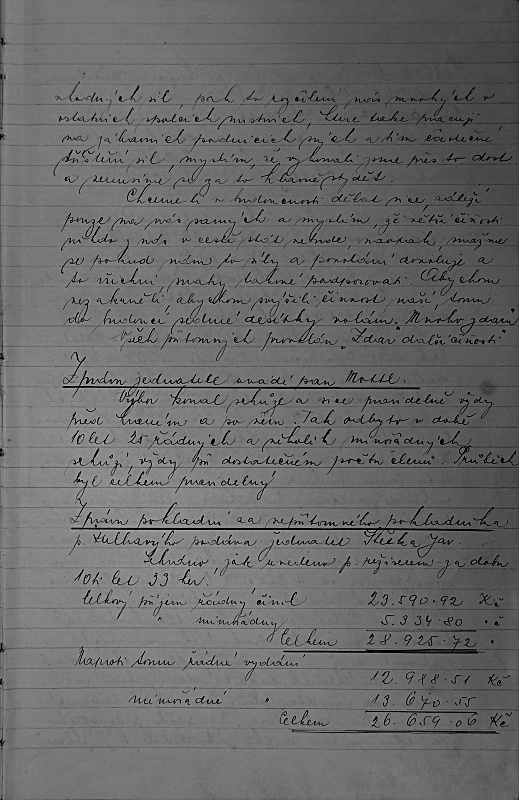 vlastných sil, pak to rozčílení nás mnohých v
ostatních spolcích místních, které také pracují
na zábavních podnicích svých a tím částečné
tříštění sil, myslím, že vykonali jsme přes to dost
a nemusíme se za to hlavně stydět.
Chceme-li v budoucnosti dělat více, záleží
pouze na nás samých a myslím, že větší činnosti
nikdo z nás v cestě stát nebude, naopak, snažme
se pokud nám to síly a povolání dovoluje a
to všichni, snahy takové podporovati. Abychom
než akrněli, abychom zvýšili činnost naší, tomu
do budoucí sedmé desítky volám "Mnoho zdaru"
Všech přítomných provolán "Zdar další činnosti"
Zprávu jednatele uvádí pan Mottl.
Výbor konal schůze a sice pravidelně vždy
před hraním a po něm. Tak odbyto v době
10 let 25 řádných a několik mimořádných
schůzí, vždy při dostatečném počtu členů. Průběh
byl celkem pravidelný
Zprávu pokladní za nepřítomného pokladníka
p. Žulhavýho podává jednatel Stěška Jar.
Sehráno, jak uvedeno p. režiserem za dobu
10ti let 33 her.
Celkový příjem řádný činil 23.590.92 Kč
" mimořádný 5.334.80 "
Celkem 28.925.72 "
Naproti tomu řádné vydání
12.988.51 Kč
mimořádné " 13.670.55
Celkem 26.659.06 Kč